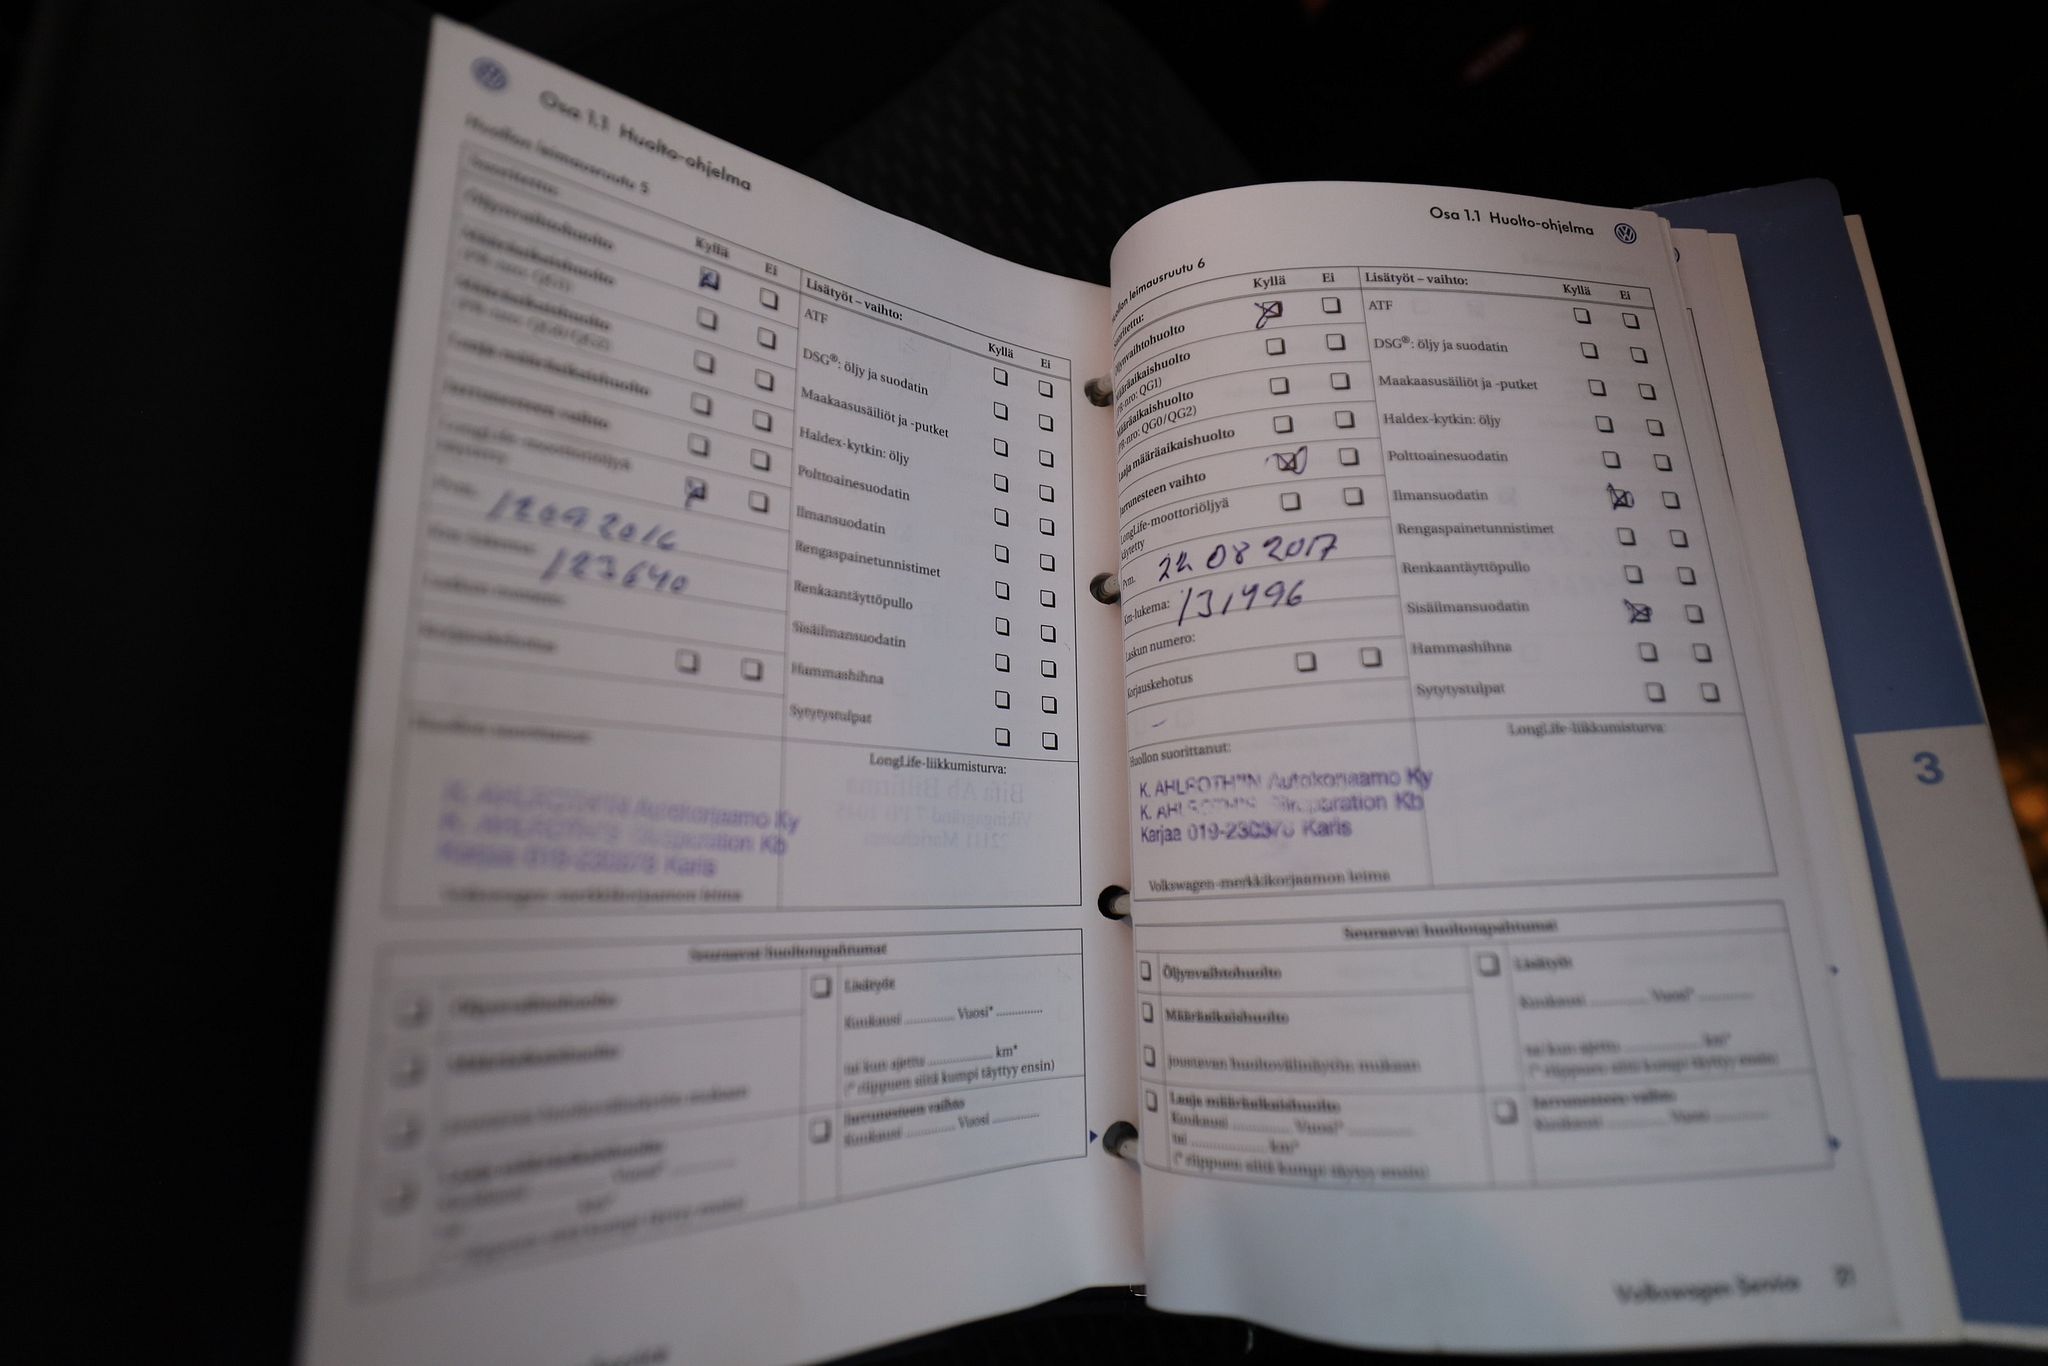 Osa 1.1 Huolto-ohjelma
Huollon leimausruutu 5
Suoritettu:
Kyllä Ei
Öljynvaihtohuolto
Määräaikaishuolto
(PR-nro: QG1)
Määräaikaishuolto
(PR-nro: QG0/QG2)
Laaja määräaikaishuolto
Jarrunesteen vaihto
LongLife-moottoriöljyä
käytetty
Pvm. 12 09 2016
Km-lukema: 123640
Laskun numero:
Korjauskehotus
Huollon suorittanut:
K. AHLROTH'IN Autokorjaamo Ky
K. AHLROTH'S Bilreparation Kb
Karjaa 019-230376 Karis
Volkswagen-merkkikorjaamon leima
Lisätyöt – vaihto:
Kyllä Ei
ATF
DSG®: öljy ja suodatin
Maakaasusäiliöt ja -putket
Haldex-kytkin: öljy
Polttoainesuodatin
Ilmansuodatin
Rengaspainetunnistimet
Renkaantäyttöpullo
Sisäilmansuodatin
Hammashihna
Sytytystulpat
LongLife-liikkumisturva:
Seuraavat huoltotapahtumat
Öljynvaihtohuolto
Määräaikaishuolto
Joustavan huoltovälinäytön mukaan
Laaja määräaikaishuolto
Kuukausi ............ Vuosi* ............
tai ............ km*
(* riippuen siitä kumpi täyttyy ensin)
Lisätyöt
Kuukausi ............ Vuosi* ............
tai kun ajettu ............ km*
(* riippuen siitä kumpi täyttyy ensin)
Jarrunesteen vaihto
Kuukausi ............ Vuosi ............
Osa 1.1 Huolto-ohjelma
Huollon leimausruutu 6
Suoritettu:
Kyllä Ei
Öljynvaihtohuolto
Määräaikaishuolto
(PR-nro: QG1)
Määräaikaishuolto
(PR-nro: QG0/QG2)
Laaja määräaikaishuolto
Jarrunesteen vaihto
LongLife-moottoriöljyä
käytetty
Pvm. 22 08 2017
Km-lukema: 131496
Laskun numero:
Korjauskehotus
Huollon suorittanut:
K. AHLROTH'IN Autokorjaamo Ky
K. AHLROTH'S Bilreparation Kb
Karjaa 019-230376 Karis
Volkswagen-merkkikorjaamon leima
Lisätyöt – vaihto:
Kyllä Ei
ATF
DSG®: öljy ja suodatin
Maakaasusäiliöt ja -putket
Haldex-kytkin: öljy
Polttoainesuodatin
Ilmansuodatin
Rengaspainetunnistimet
Renkaantäyttöpullo
Sisäilmansuodatin
Hammashihna
Sytytystulpat
LongLife-liikkumisturva:
Seuraavat huoltotapahtumat
Öljynvaihtohuolto
Määräaikaishuolto
Joustavan huoltovälinäytön mukaan
Laaja määräaikaishuolto
Kuukausi ............ Vuosi* ............
tai ............ km*
(* riippuen siitä kumpi täyttyy ensin)
Lisätyöt
Kuukausi ............ Vuosi* ............
tai kun ajettu ............ km*
(* riippuen siitä kumpi täyttyy ensin)
Jarrunesteen vaihto
Kuukausi ............ Vuosi ............
Volkswagen Service 21
3